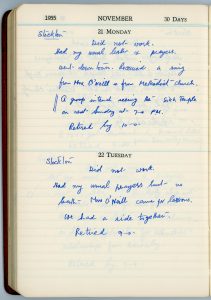 1955 NOVEMBER 30 DAYS
21 MONDAY
Stockton
Did not work.
Had my usual bath & prayers.
went down town. Received a ring
from Mrs O'Neill & from Methodist church.
A group intend seeing the Sikh Temple
on next Sunday at 7.00 P.M.
Retired by 10-0
22 TUESDAY
Stockton
Did not work.
Had my usual prayers but no
bath - Mrs O'Neill came for lessons.
We had a ride together.
Retired 9-0.